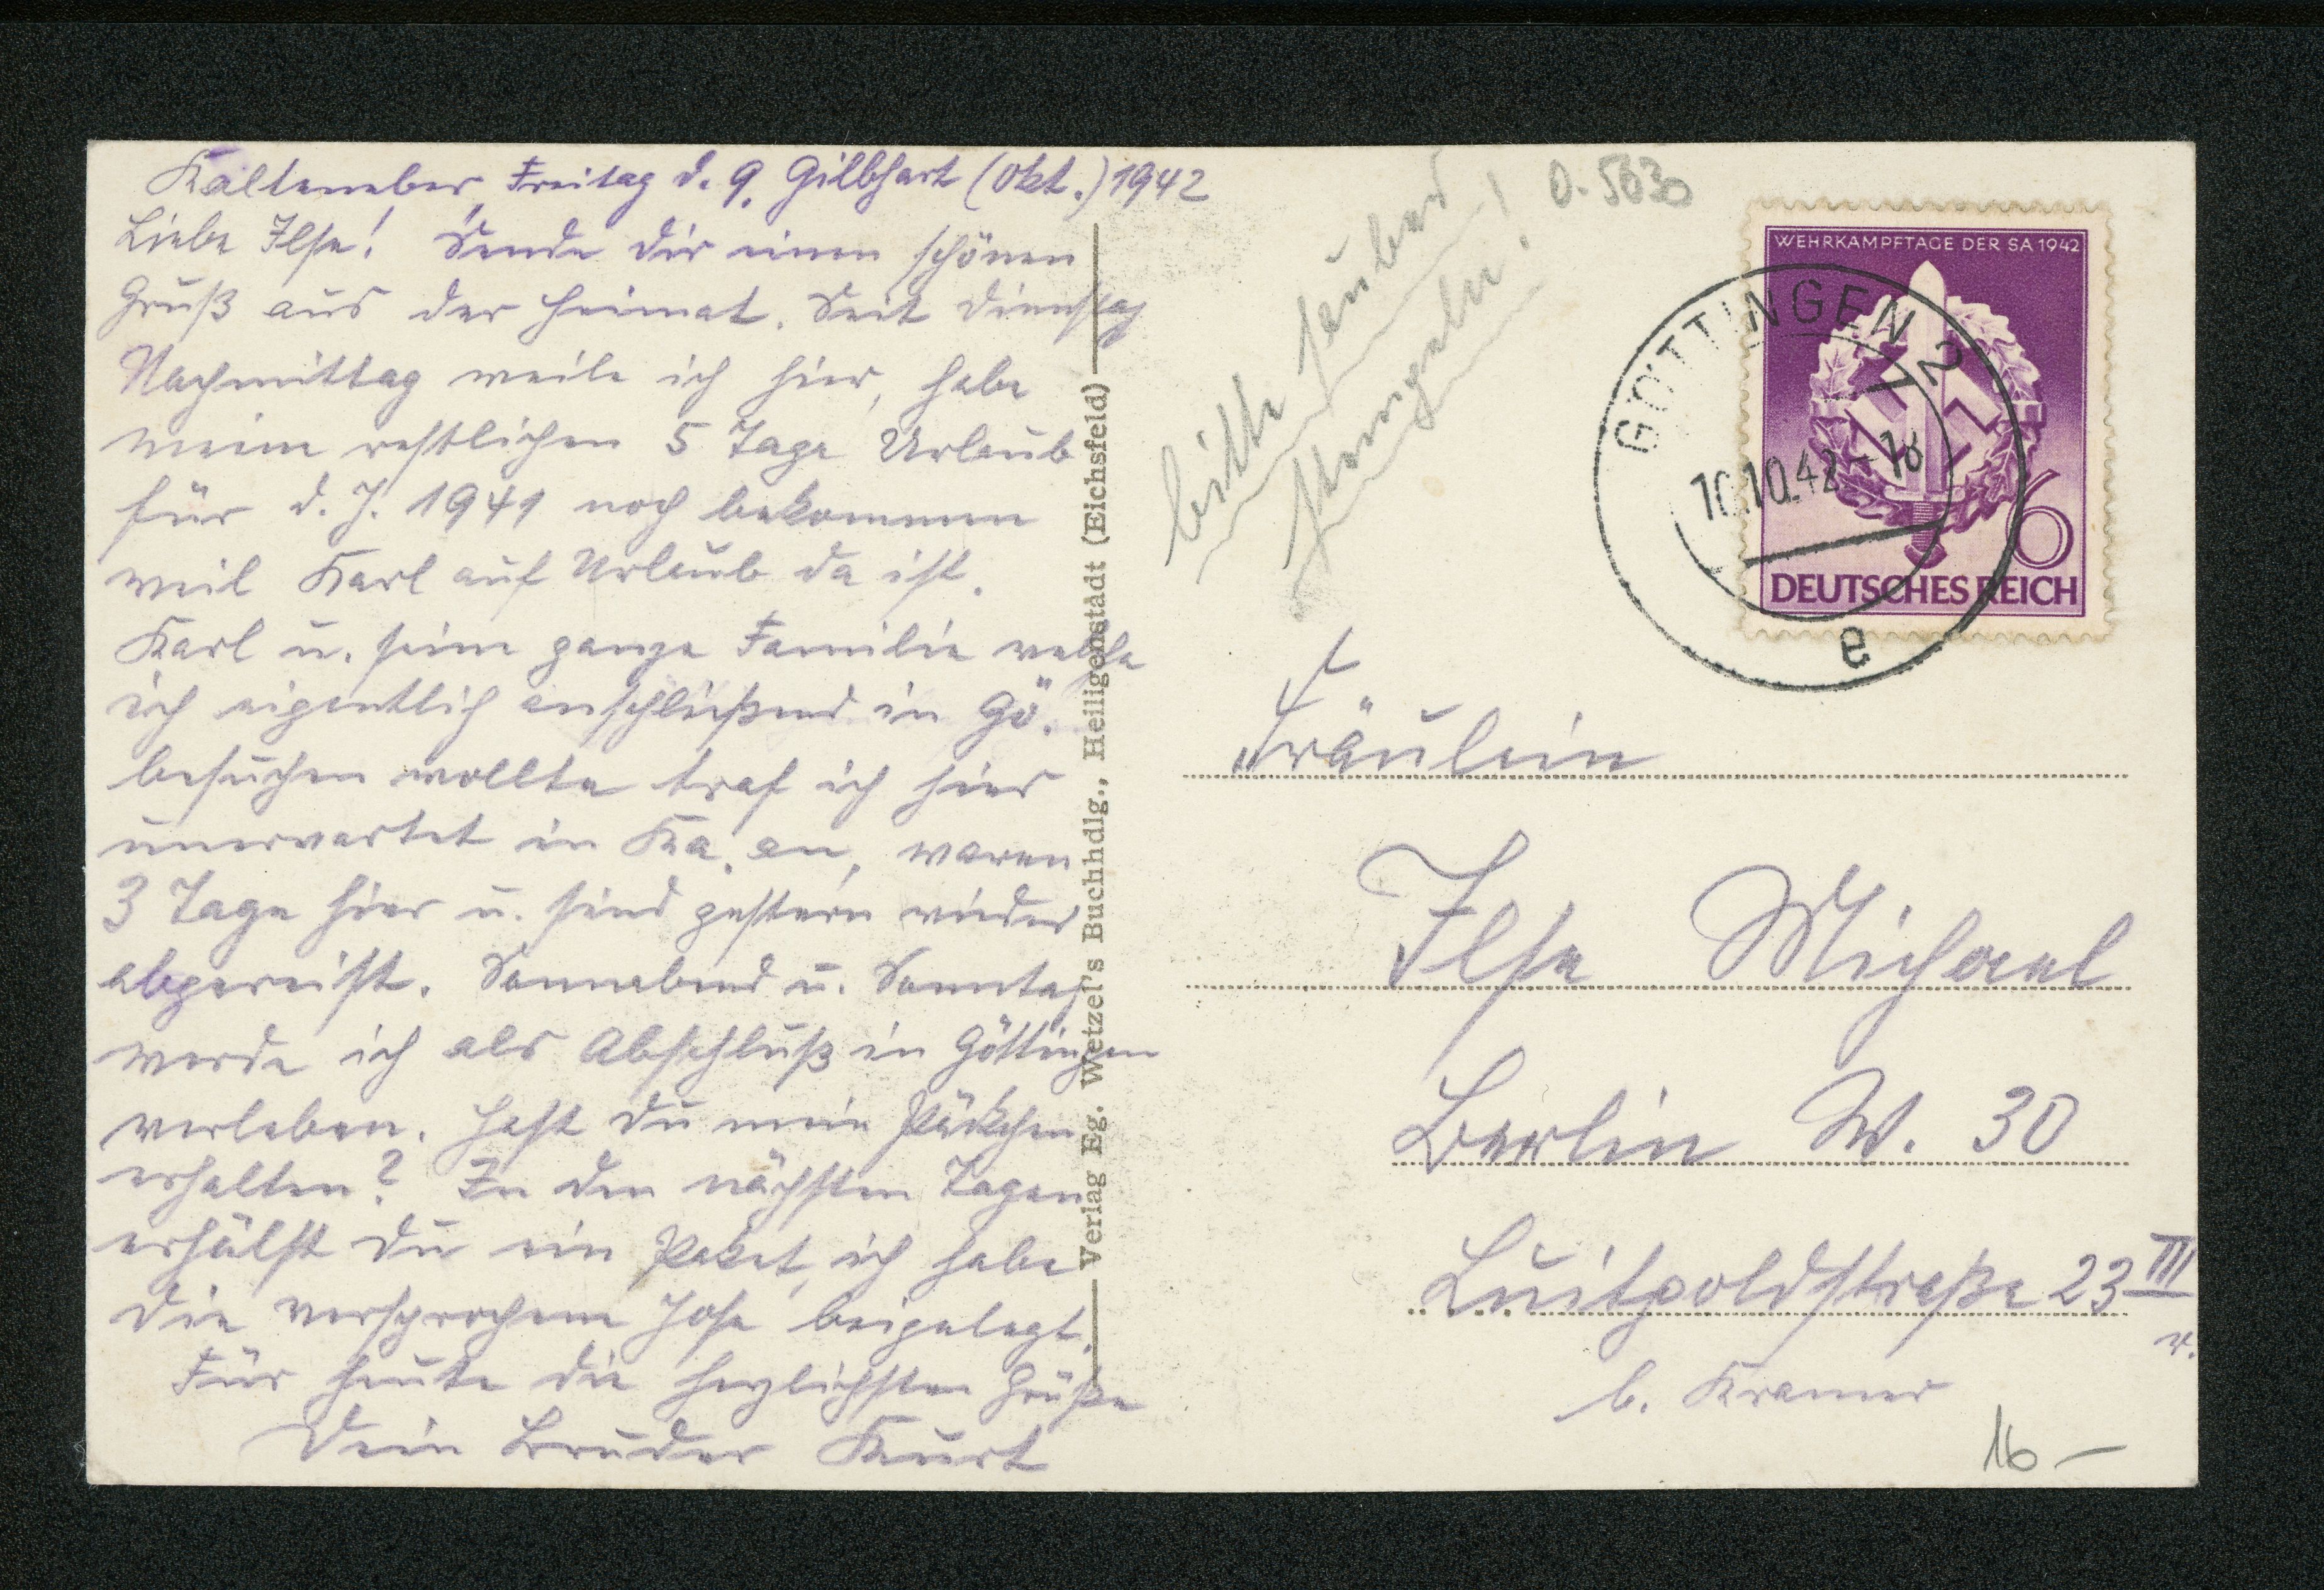 Kalteneber, Freitag d. 9. Gilbhart (Okt.) 1942
Liebe Ilse! Sende Dir einen schönen
Gruß aus der Heimat. Seit Dienstag
Nachmittag weile ich hier, habe
meine restlichen 5 Tage Urlaub
für d. J. 1941 noch bekommen
weil Karl auf Urlaub da ist.
Karl u. seine ganze Familie welche
ich eigentlich anschließend in Gö.
besuchen wollte traf ich hier
unerwartet in Ka. an, waren
3 Tage hier u. sind gestern wieder
abgereist. Sonnabend u. Sonntag
werde ich als Abschluß in Göttingen
verleben. Hast Du mein Päckchen
erhalten? In den nächsten Tagen
erhälst Du ein Paket, ich habe
die versprochene Hose beigelegt.
Für heute die herzlichsten Grüße
Dein Bruder Kurt
Verlag Eg. Wetzel's Buchhdlg., Heiligenstadt (Eichsfeld)
bitte sauber
stempeln!
0.5630
WEHRKAMPFTAGE DER SA 1942
6
DEUTSCHES REICH
GÖTTINGEN 2
10.10.42 - 18
e
Fräulein
Ilse Michael
Berlin W. 30
Luitpoldstraße 23 III
r.
b. Kramer
16 –